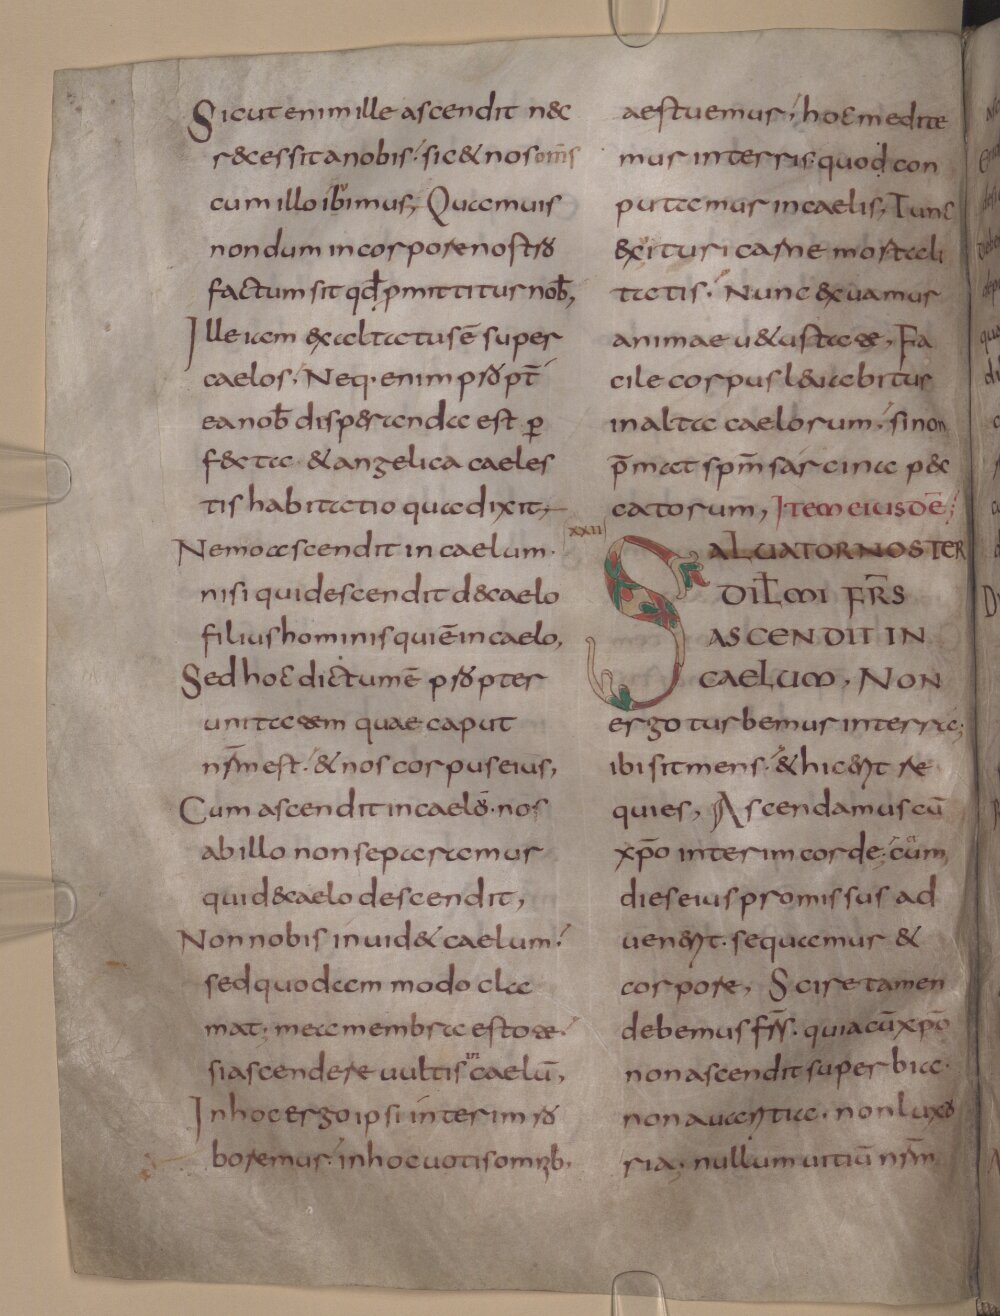 Sicut enim ille ascendit n&c
r&cessit a nobis; sic & nos om̅s
cum illo ibimus; Quamuis
nondum in corpore nostro
factum sit qđ p̄mittitur nob̄;
Ille iam exaltatus ē super
caelos; Neq· enim propt̄
ea nob̄ disperanda est p̱
fecta & angelica caeles
tis habitatio quia dixit;
Nemo ascendit in caelum·
nisi qui descendit de caelo
filius hominis qui ē in caelo;
Sed hoc dictum ē propter
unitatem quae caput
nr̄m est; & nos corpus eius;
Cum ascendit in caelo· nos
ab illo non separamur
qui de caelo descendit;
Non nobis inuid& caelum;
sed quodam modo cla
mat; mea membra estote;
si ascendere uultis in caelū;
In hoc ergo ipsi interim ro
boremur; in hoc uotis omnib·
aestuemur; hoc medite
mur in terris quod con
putamur in caelis; Tunc
exituri carne mortali
tatis; Nunc exuamur
animae u&ustate; Fa
cile corpus leuabitur
in alta caelorum; si non
p̄mat sp̄m sarcina pec
catorum; Item eiusdē;
XXII
SALUATOR NOSTER
DIL̄MI FR̄S
ASCENDIT IN
CAELUM; NON
ergo turbemur in terra;
ibi sit mens; & hic erit re
quies; Ascendamus cū
xp̄o interim corde; cum
dies eius promissus ad
uenerit· sequamur &
corpore; Scire tamen
debemus fr̄s· quia cū xp̄o
non ascendit superbia·
non auaritia· non luxo
ria; nullum uitiū nr̄m